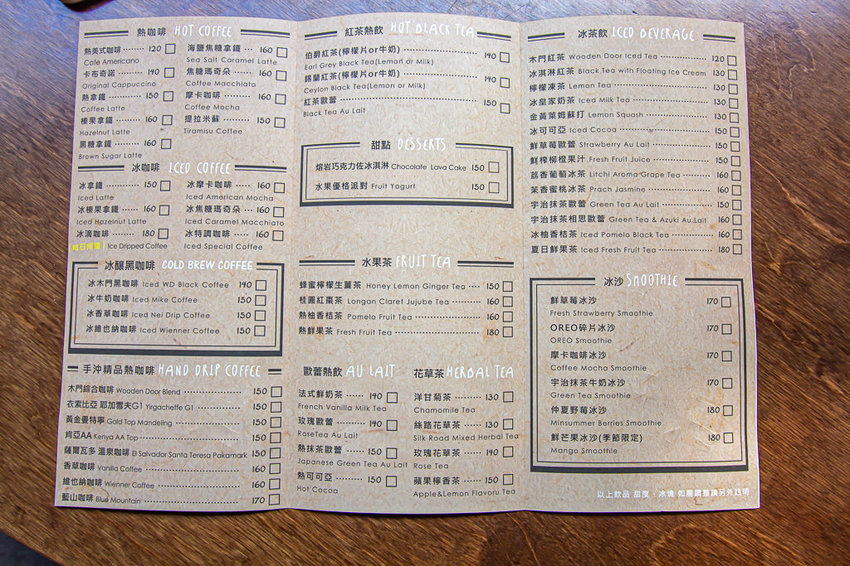 熱咖啡 HOT COFFEE
熱美式咖啡 ······ 120
Cafe Americano
卡布奇諾 ········ 140
Original Cappuccino
熱拿鐵 ·········· 150
Coffee Latte
榛果拿鐵 ········ 160
Hazelnut Latte
黑糖拿鐵 ········ 160
Brown Sugar Latte
海鹽焦糖拿鐵 ··· 160
Sea Salt Caramel Latte
焦糖瑪奇朵 ···· 160
Coffee Macchiato
摩卡咖啡 ······· 160
Coffee Mocha
提拉米蘇 ······· 150
Tiramisu Coffee
冰咖啡 ICED COFFEE
冰拿鐵 ·········· 150
Iced Latte
冰榛果拿鐵 ····· 160
Iced Hazelnut Latte
冰滴咖啡 ······· 180
Ice Dripped Coffee
冰摩卡咖啡 ···· 160
Iced American Mocha
冰焦糖瑪奇朵 ·· 160
Iced Caramel Macchiato
冰特調咖啡 ···· 160
Iced Special Coffee
冰釀黑咖啡 COLD BREW COFFEE
冰木門黑咖啡 Iced WD Black Coffee 140
冰牛奶咖啡 Iced Mike Coffee 150
冰香草咖啡 Iced Nei Drip Coffee 150
冰維也納咖啡 Iced Wienner Coffee 150
手沖精品熱咖啡 HAND DRIP COFFEE
木門綜合咖啡 Wooden Door Blend 150
衣索比亞 耶加雪夫G1 Yirgacheffe G1 150
黃金曼特寧 Gold Top Mandeling 150
肯亞AA Kenya AA Top 150
薩爾瓦多 溫泉咖啡 El Salvador Santa Teresa Pakamark 150
香草咖啡 Vanilla Coffee 160
維也納咖啡 Wienner Coffee 160
藍山咖啡 Blue Mountain 170
紅茶熱飲 HOT BLACK TEA
伯爵紅茶(檸檬片or牛奶) 140
Earl Grey Black Tea(Lemon or Milk)
錫蘭紅茶(檸檬片or牛奶) 140
Ceylon Black Tea(Lemon or Milk)
紅茶歐蕾 150
Black Tea Au Lait
甜點 DESSERTS
熔岩巧克力佐冰淇淋 Chocolate Lava Cake 150
水果優格派對 Fruit Yogurt 150
水果茶 FRUIT TEA
蜂蜜檸檬生薑茶 Honey Lemon Ginger Tea 150
桂圓紅棗茶 Longan Claret Jujube Tea 160
熱柚香桔茶 Pomelo Fruit Tea 160
熱鮮果茶 Fresh Fruit Tea 180
歐蕾熱飲 AU LAIT
法式鮮奶茶 ··· 140
French Vanilla Milk Tea
玫瑰歐蕾 ····· 140
RoseTea Au Lait
熱抹茶歐蕾 ··· 150
Japanese Green Tea Au Lait
熱可可亞 ····· 150
Hot Cocoa
花草茶 HERBAL TEA
洋甘菊茶 ······ 130
Chamomile Tea
絲路花草茶 ···· 130
Silk Road Mixed Herbal Tea
玫瑰花草茶 ···· 140
Rose Tea
蘋果檸香茶 ···· 150
Apple&Lemon Flavoru Tea
冰茶飲 ICED BEVERAGE
木門紅茶 Wooden Door Iced Tea 120
冰淇淋紅茶 Black Tea with Floating Ice Cream 130
檸檬凍茶 Lemon Tea 130
冰皇家奶茶 Iced Milk Tea 130
金黃萊姆蘇打 Lemon Squash 130
冰可可亞 Iced Cocoa 150
鮮草莓歐蕾 Strawberry Au Lait 150
鮮榨柳橙果汁 Fresh Fruit Juice 150
荔香葡萄冰茶 Litchi Aroma Grape Tea 160
茉香蜜桃冰茶 Prach Jasmine 160
宇治抹茶歐蕾 Green Tea Au Lait 150
宇治抹茶相思歐蕾 Green Tea & Azuki Au Lait 160
冰柚香桔茶 Iced Pomelo Black Tea 160
夏日鮮果茶 Iced Fresh Fruit Tea 180
冰沙 SMOOTHIE
鮮草莓冰沙 170
Fresh Strawberry Smoothie
OREO碎片冰沙 170
OREO Smoothie
摩卡咖啡冰沙 170
Coffee Mocha Smoothie
宇治抹茶牛奶冰沙 170
Green Tea Smoothie
仲夏野莓冰沙 180
Minsummer Berries Smoothie
鮮芒果冰沙(季節限定) 180
Mango Smoothie
以上飲品 甜度、冰塊 如需調整請另外註明